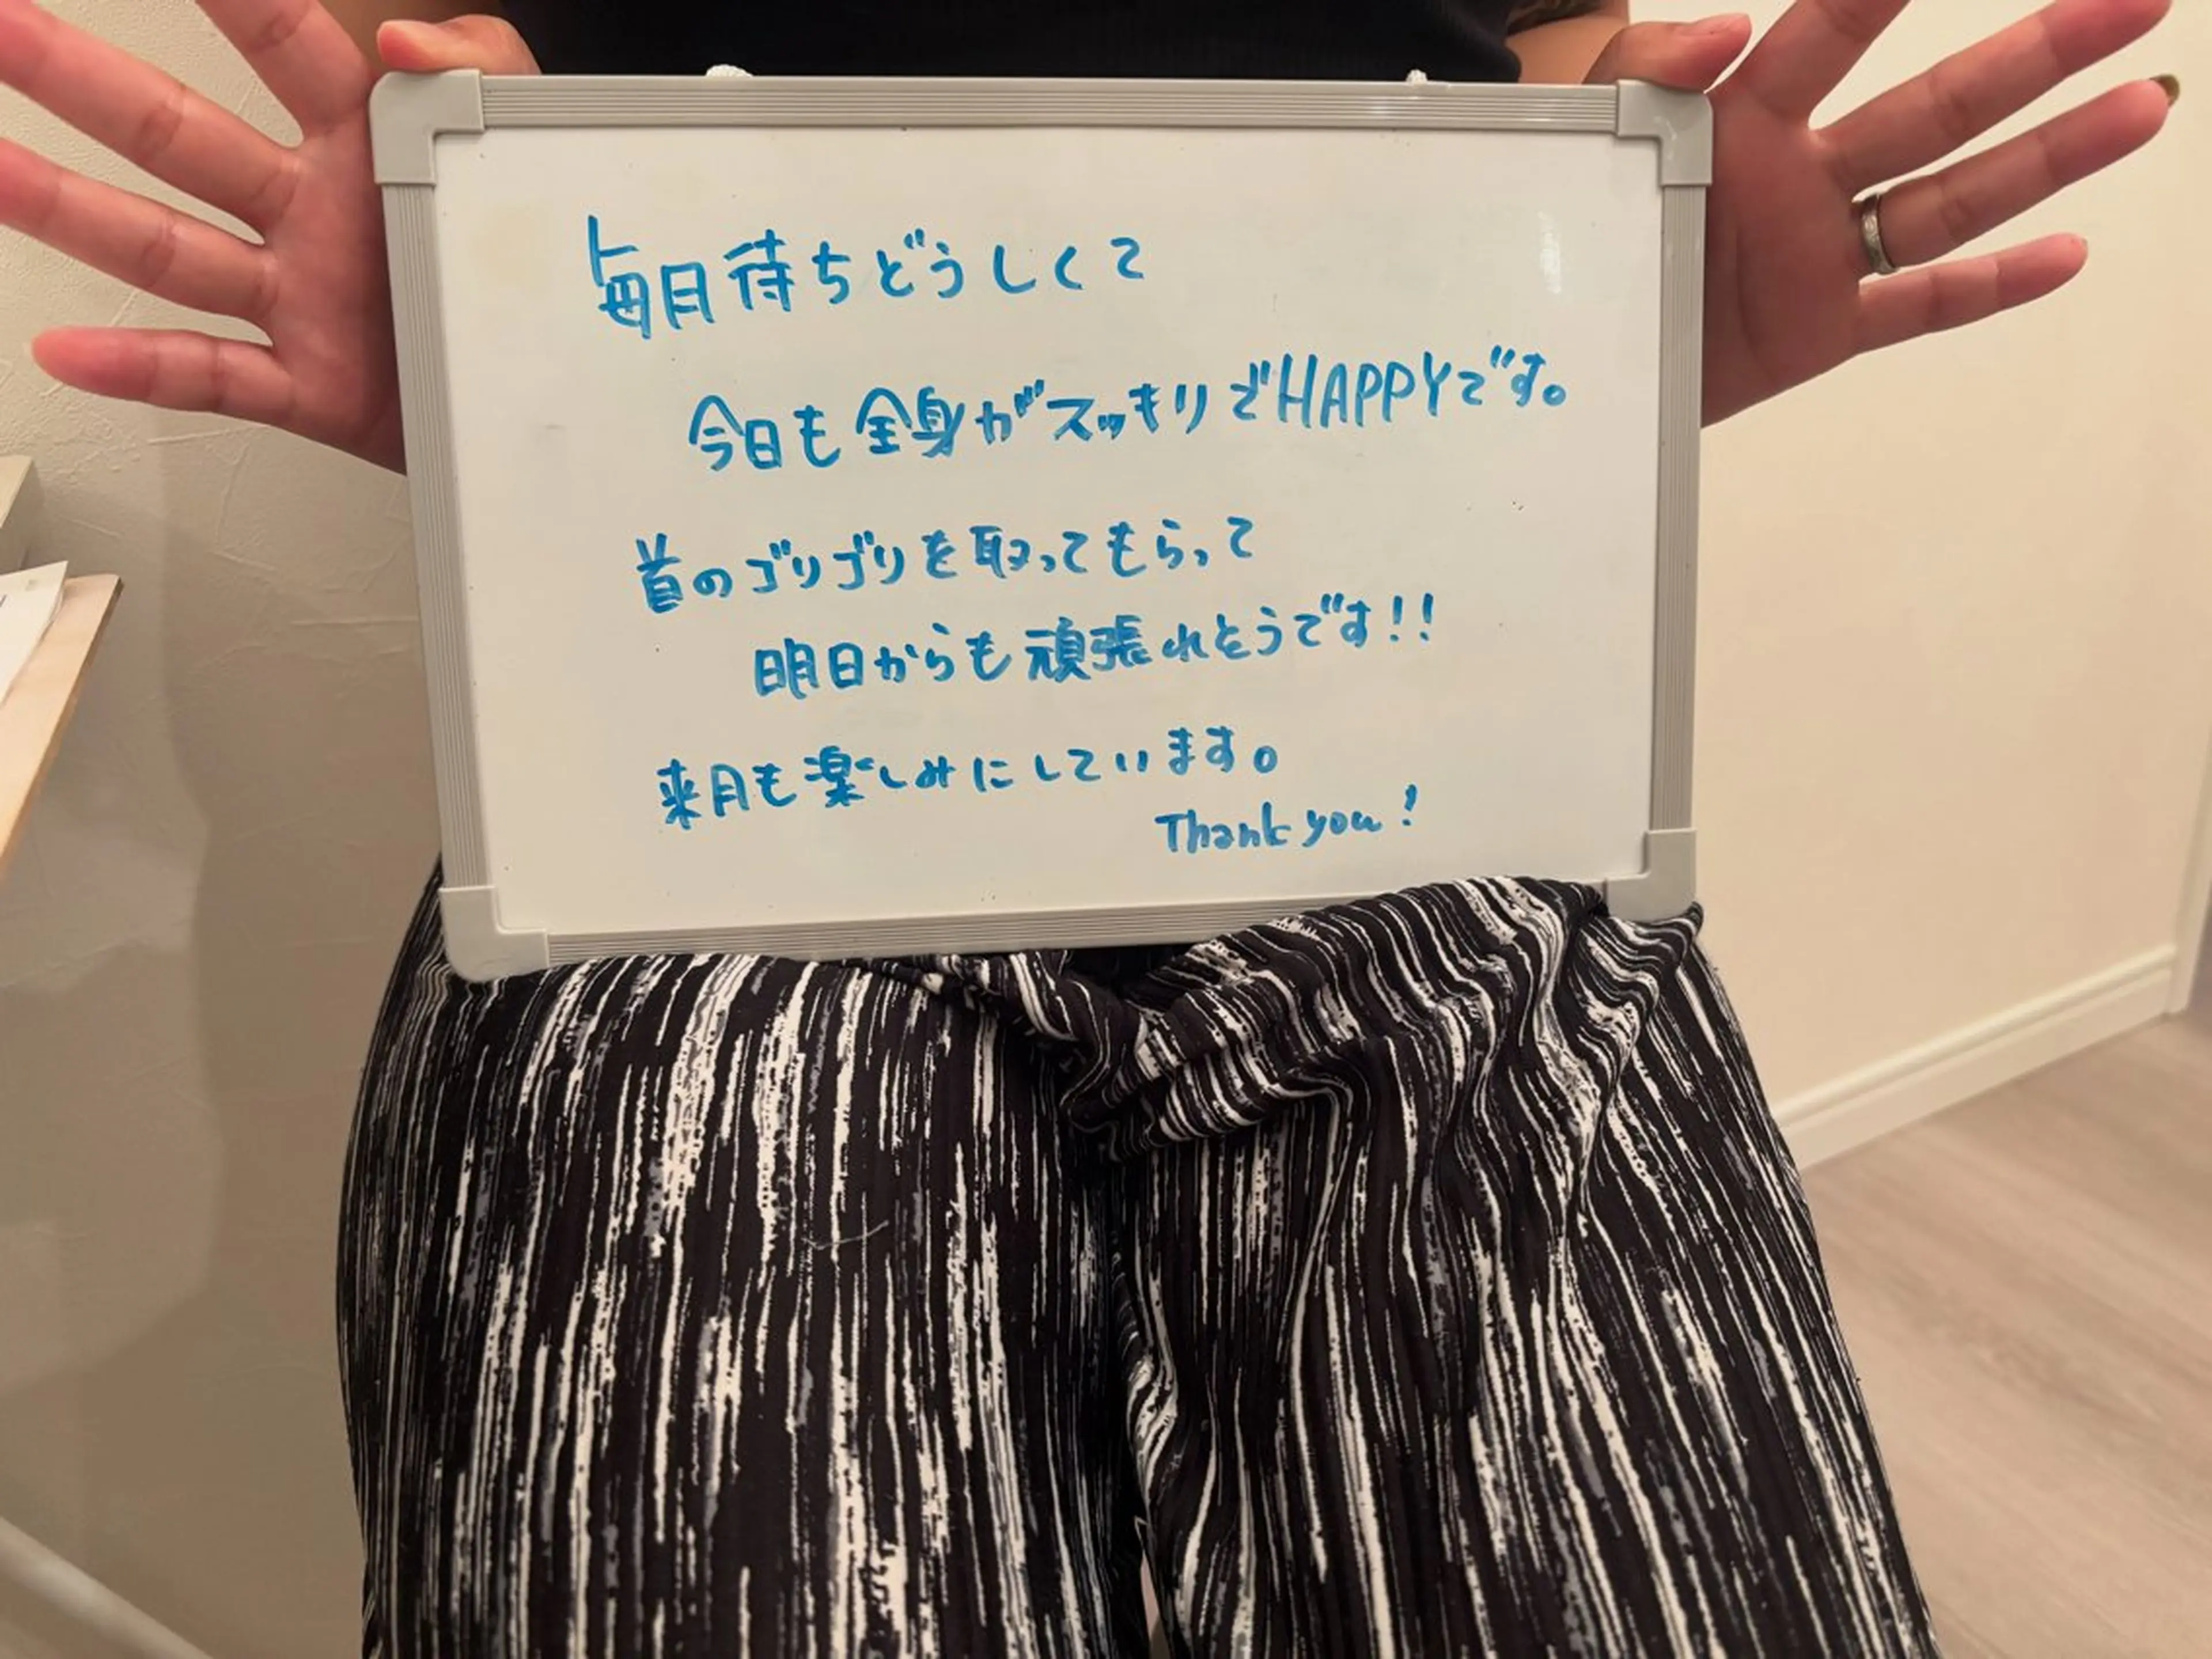 毎日待ちどうしくて
今日も全身がスッキリでHAPPYです。
首のゴリゴリを取ってもらって
明日からも頑張れそうです!!
来月も楽しみにしています。
Thank you!